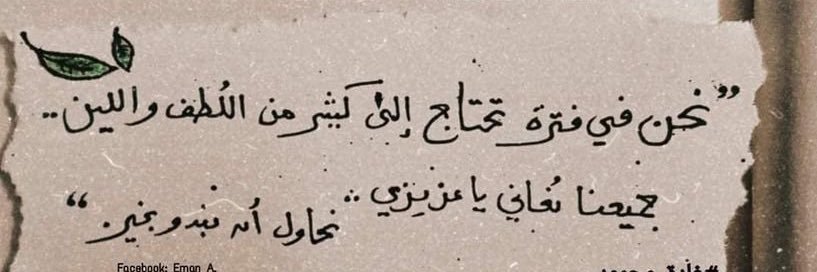 ”نحن في فترة تحتاج إلى كثير من اللُطف واللين..
جميعنا نُعاني يا عزيزي.. نحاول أن نبدو بخير.“
Facebook: Eman A.